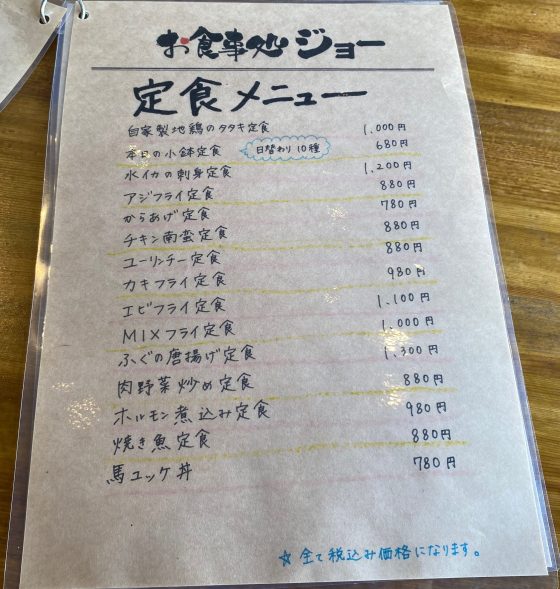 お食事処 ジョー
定食メニュー
自家製地鶏のタタキ定食 1,000円
本日の小鉢定食 日替わり10種 680円
水イカの刺身定食 1,200円
アジフライ定食 880円
からあげ定食 780円
チキン南蛮定食 880円
ユーリンチー定食 880円
カキフライ定食 980円
エビフライ定食 1,100円
MIXフライ定食 1,000円
ふぐの唐揚げ定食 1,300円
肉野菜炒め定食 880円
ホルモン煮込み定食 980円
焼き魚定食 880円
馬ユッケ丼 780円
☆ 全て税込み価格になります。